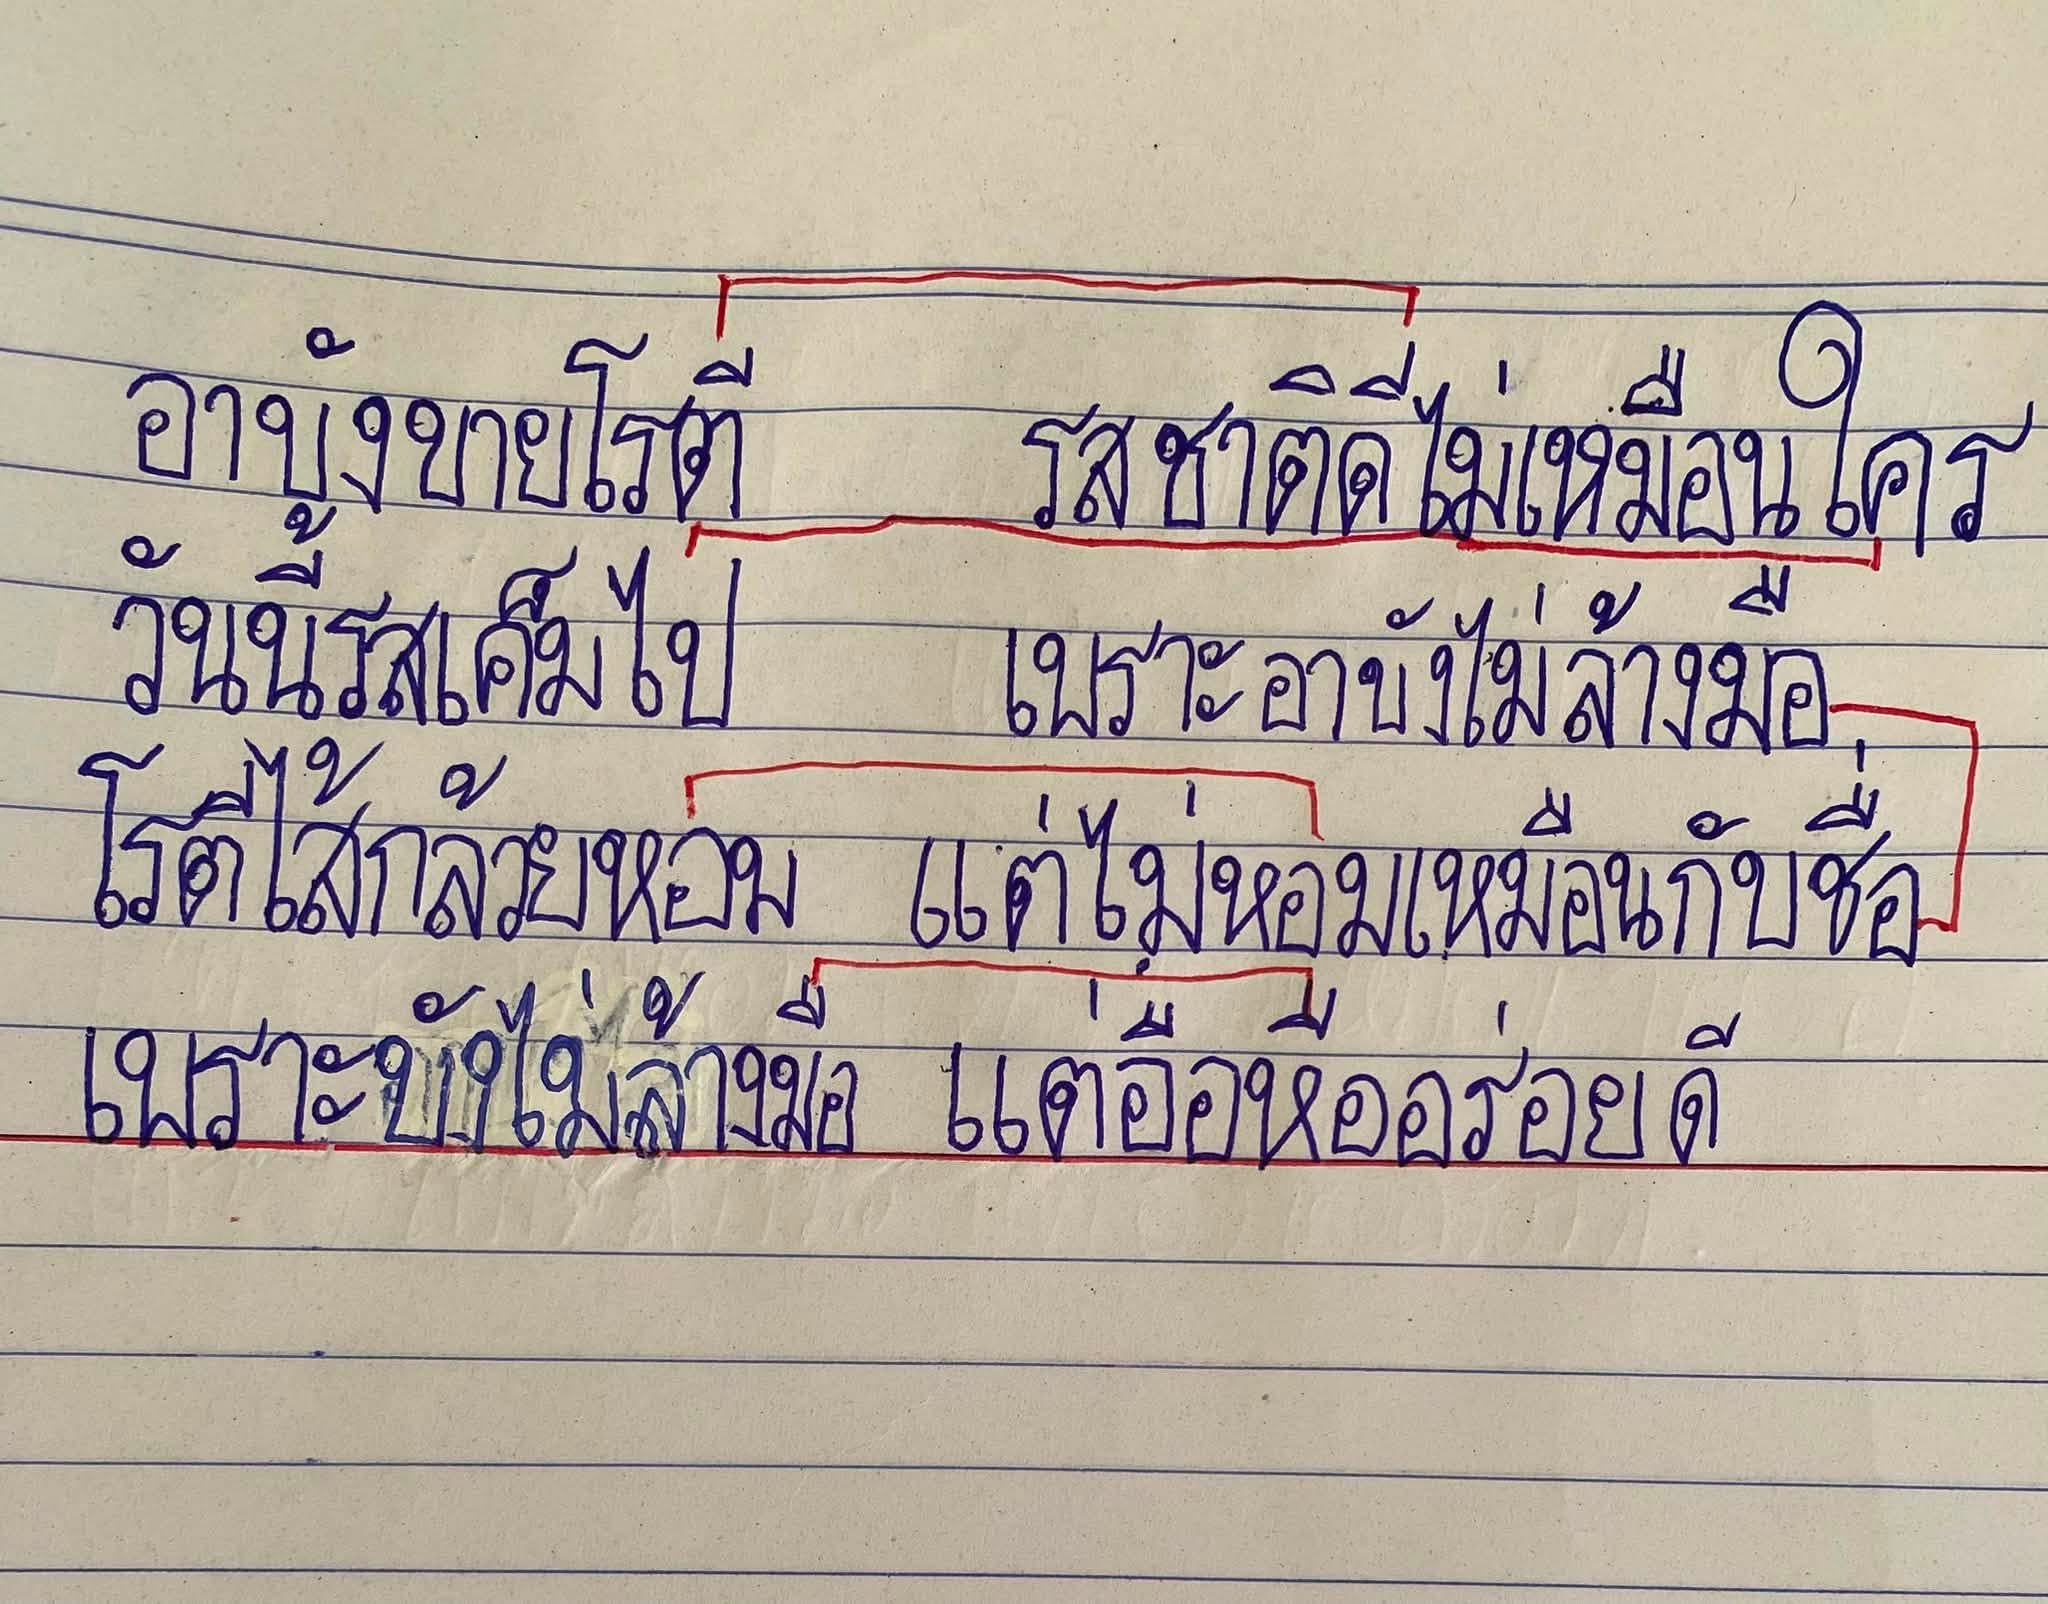 อาบังขายโรตี รสชาติดีไม่เหมือนใคร
วันนี้รสเค็มไป เพราะอาบังไม่ล้างมือ
โรตีไส้กล้วยหอม แต่ไม่หอมเหมือนกับชื่อ
เพราะบังไม่ล้างมือ แต่อื่อหืออร่อยดี